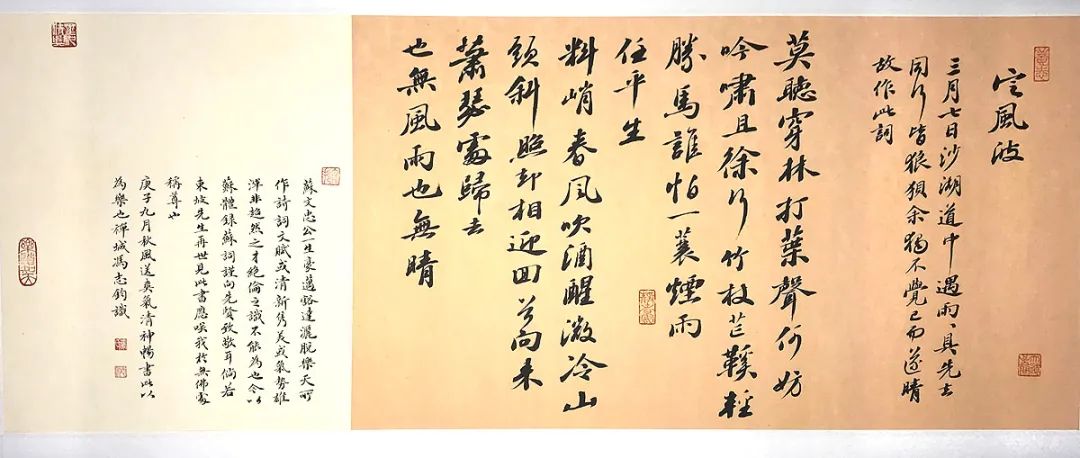 定風波
三月七日沙湖道中遇雨雨具先去
同行皆狼狽余獨不覺已而遂晴
故作此詞
莫聽穿林打葉聲何妨
吟嘯且徐行竹杖芒鞵輕
勝馬誰怕一蓑煙雨
任平生
料峭春風吹酒醒微冷山
頭斜照却相迎回首向来
蕭瑟處歸去
也無風雨也無晴
蘇文忠公一生豪邁豁達灑脱樂天所
作詩詞文賦或清新雋美或氣勢雄
渾非超然之才絶倫之識不能為也今以
蘇體録蘇詞謹向先賢致敬耳倘若
東坡先生再世見此書應嘆我於無佛處
稱尊也
庚子九月秋風送爽氣清神暢書此以
為樂也禪城馮志鈞識